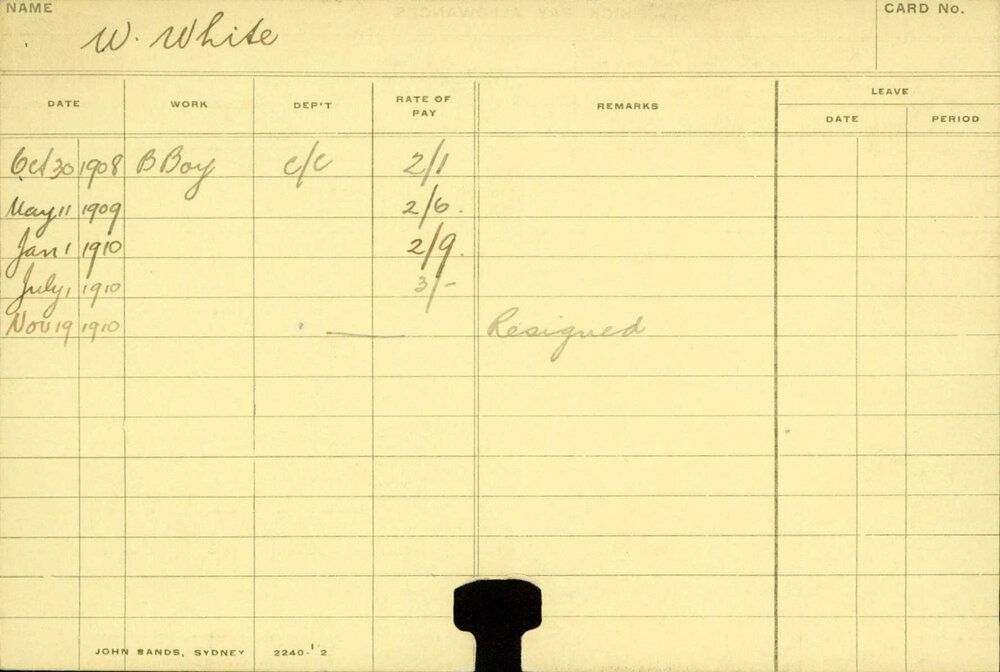 NAME W. White CARD No.
LEAVE
DATE WORK DEP'T RATE OF PAY REMARKS DATE PERIOD
Oct 30 1908 B Boy c/c 2/1
May 11 1909 2/6.
Jan 1 1910 2/9.
July 1 1910 3/-
Nov 19 1910 — Resigned
JOHN SANDS, SYDNEY 2240-1/2